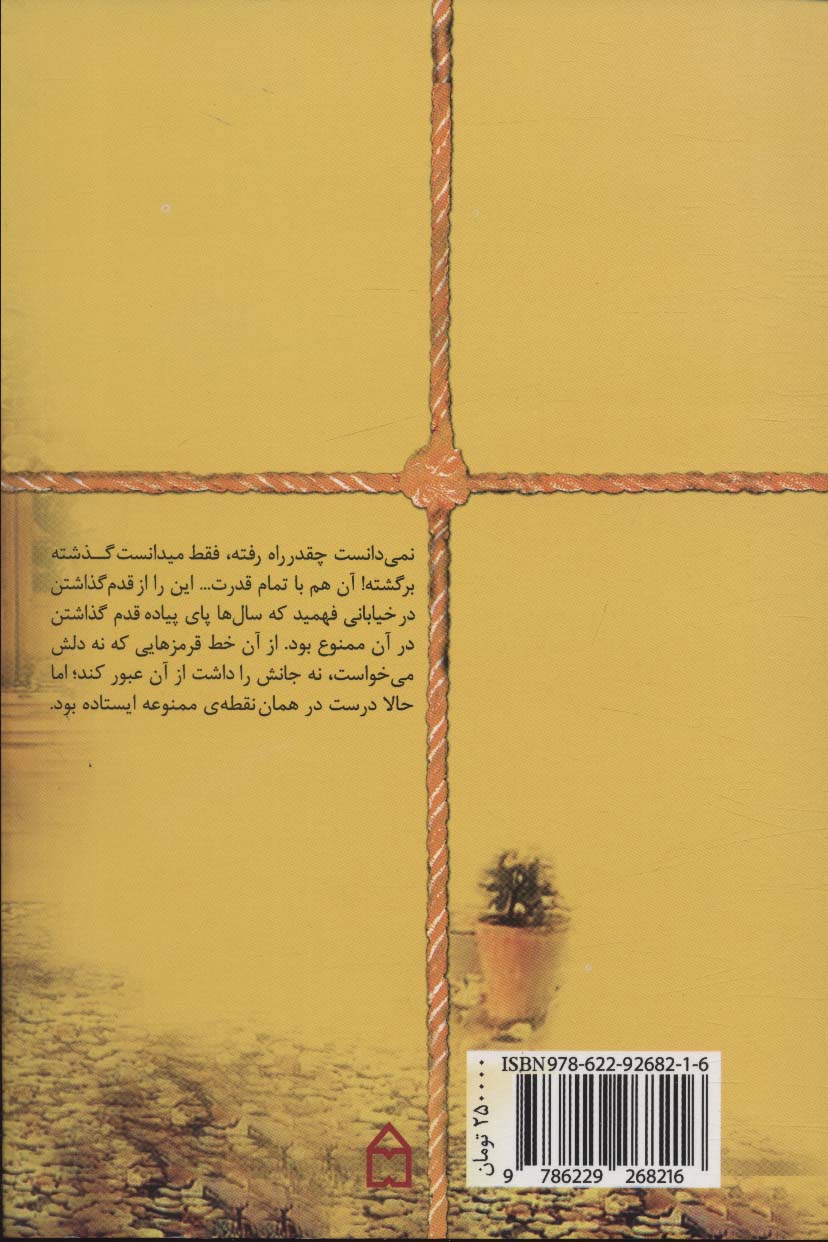 نمی‌دانست چقدر راه رفته، فقط میدانست گـــذشته
برگشته! آن هم با تمام قدرت... این را از قدم گذاشتن
در خیابانی فهمید که سال‌ها پای پیاده قدم گذاشتن
در آن ممنوع بود. از آن خط قرمزهایی که نه دلش
می‌خواست، نه جانش را داشت از آن عبور کند؛ اما
حالا درست در همان نقطه‌ی ممنوعه ایستاده بود.
ISBN 978-622-92682-1-6
۲۵۰۰۰۰ تومان
9 786229 268216